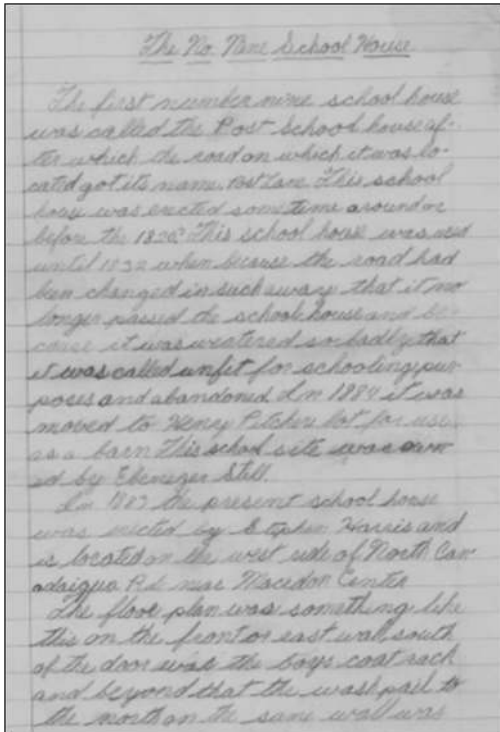 The No. Nine School House
The first number nine school house
was called the Post School house af-
ter which the road on which it was lo-
cated got its name, Post Lane. This school
house was erected sometime around or
before the 1820s. This school house was used
until 1832 when because the road had
been changed in such a way that it no
longer passed the school house and be-
cause it was weathered so badly that
it was called unfit for schooling pur-
poses and abandoned. In 1884 it was
moved to Henry Pitchers lot for use
as a barn. This school site was own
ed by Ebenezer Still.
In 1883 the present school house
was erected by Stephen Harris and
is located on the west side of North Can
adaigua Rd. near Macedon Center
The floor plan was something like
this on the front or east wall, south
of the door was the boys coat rack
and beyond that the wash pail to
the north on the same wall was